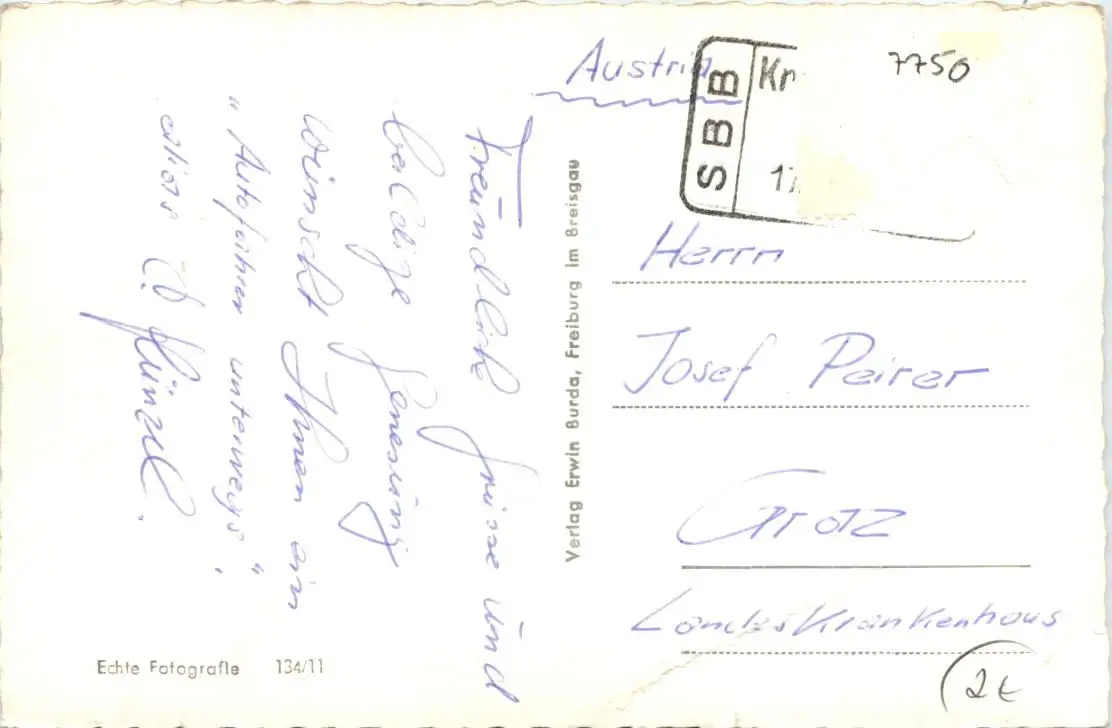 Freundliche Grüsse und
baldige Genesung
wünscht Ihnen ein
"Autofahrer unterwegs"
Künzel.
Verlag Erwin Burda, Freiburg im Breisgau
Echte Fotografie 134/11
Austria
SBB
Kr
17
7750
Herrn
Josef Peirer
Graz
Landeskrankenhaus
2€